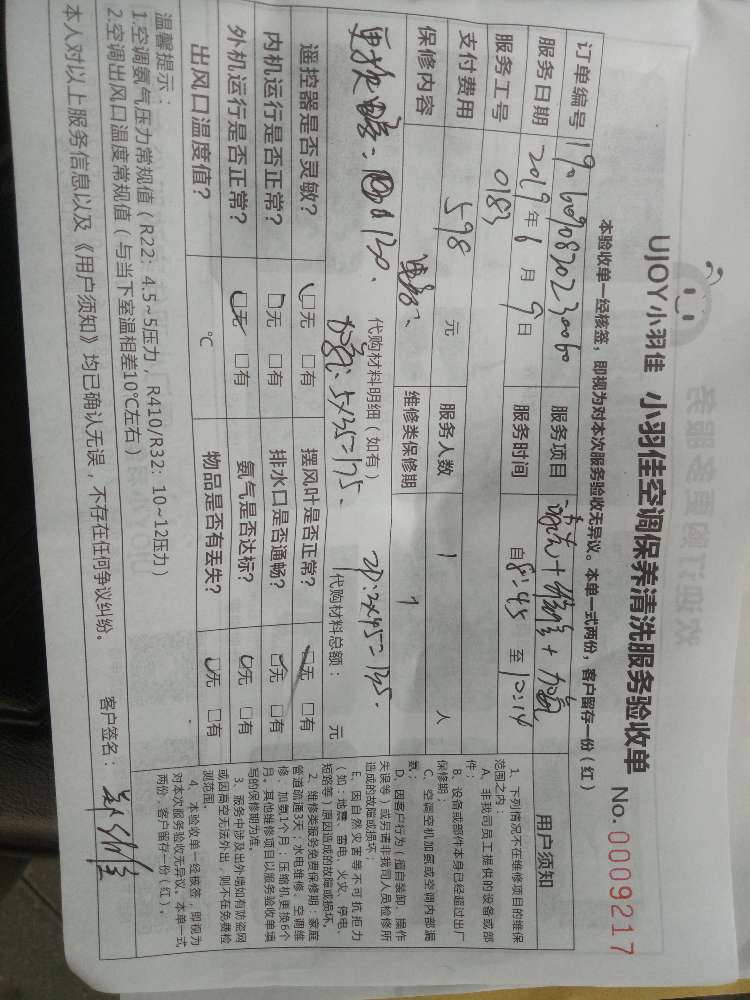 UJOY小羽佳 小羽佳空调保养清洗服务验收单 No.0009217
本验收单一经核签，即视为对本次服务验收无异议。本单一式两份，客户留存一份（红）
订单编号 服务项目 清洗+维修+加氨
服务日期 2019年6月9日 服务时间 自8:45至10:14
服务工号 0183
支付费用 598元 服务人数 1人
保修内容 维修类保修期
代购材料明细（如有） 代购材料总额： 元
加氨：5×35=175.
遥控器是否灵敏？ □无 □有 摆风叶是否正常？ □无 □有
内机运行是否正常？ □无 □有 排水口是否通畅？ □无 □有
外机运行是否正常？ □无 □有 氨气是否达标？ □无 □有
出风口温度值？ ℃ 物品是否有丢失？ □无 □有
温馨提示：
1.空调氨气压力常规值（R22：4.5~5压力，R410/R32：10~12压力）
2.空调出风口温度常规值（与当下室温相差10℃左右）
本人对以上服务信息以及《用户须知》均已确认无误，不存在任何争议纠纷。 客户签名：
用户须知
1、下列情况不在维修项目的维保
范围之内：
A、非我司员工提供的设备或部
件；
B、设备或部件本身已经超过出厂
保修期；
C、空调空机加氨或空调内部漏
氨；
D、因客户行为（擅自装卸、操作
失误等）或另请非我司人员检修所
造成的故障或损坏；
E、因自然灾害等不可抗拒力
（如：地震、雷电、火灾、停电、
短路等）原因造成的故障或损坏。
2、维修类服务免费保修期：家庭
管道疏通3天；水电维修、空调维
修、加氨1个月，压缩机更换6个
月。其他维修项目以服务验收单填
写的保修期为准。
3、服务中涉及出外墙如有防盗网
或因高空无法外出，则不在免费检
测范围。
4、本验收单一经核签，即视为
对本次服务验收无异议。本单一式
两份，客户留存一份（红）。